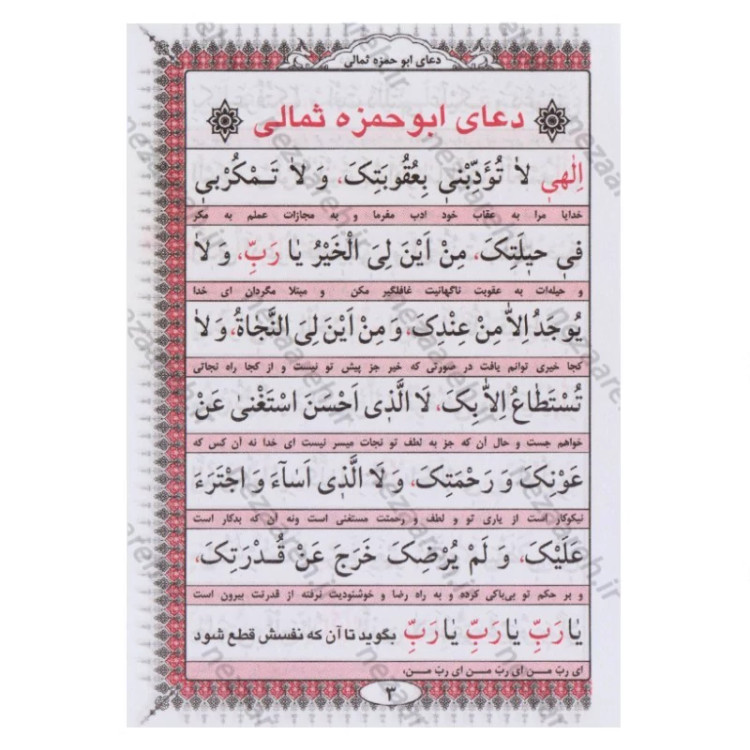 دعای ابو حمزه ثمالی
دعای ابوحمزه ثمالی
اِلٰهی لاٰ تُؤَدِّبْنی بِعُقُوبَتِکَ، وَ لاٰ تَمْکُرْبی
خدایا مرا به عقاب خود ادب مفرما و به مجازات عملم به مکر
فی حیلَتِکَ، مِنْ اَیْنَ لِیَ الْخَیْرُ یٰا رَبِّ، وَ لاٰ
و حیله‌ات به عقوبت ناگهانیت غافلگیر مکن و مبتلا مگردان ای خدا
یُوجَدُ اِلاّٰ مِنْ عِنْدِکَ، وَ مِنْ اَیْنَ لِیَ النَّجٰاةُ، وَ لاٰ
کجا خیری توانم یافت در صورتی که خیر جز پیش تو نیست و از کجا راه نجاتی
تُسْتَطٰاعُ اِلاّٰ بِکَ، لاَ الَّذی اَحْسَنَ اسْتَغْنیٰ عَنْ
خواهم جست و حال آن که جز به لطف تو نجات میسر نیست ای خدا نه آن کس که
عَوْنِکَ وَ رَحْمَتِکَ، وَ لاَ الَّذی اَسٰآءَ وَ اجْتَرَءَ
نیکوکار است از یاری تو و لطف و رحمتت مستغنی است ونه آن که بدکار است
عَلَیْکَ، وَ لَمْ یُرْضِکَ خَرَجَ عَنْ قُدْرَتِکَ،
و بر حکم تو بی‌باکی کرده و به راه رضا و خوشنودیت نرفته از قدرتت بیرون است
یٰا رَبِّ یٰا رَبِّ یٰا رَبِّ بگوید تا آن که نفسش قطع شود
ای ربّ من ای ربّ من ای ربّ من،
۳
nezaareh.ir